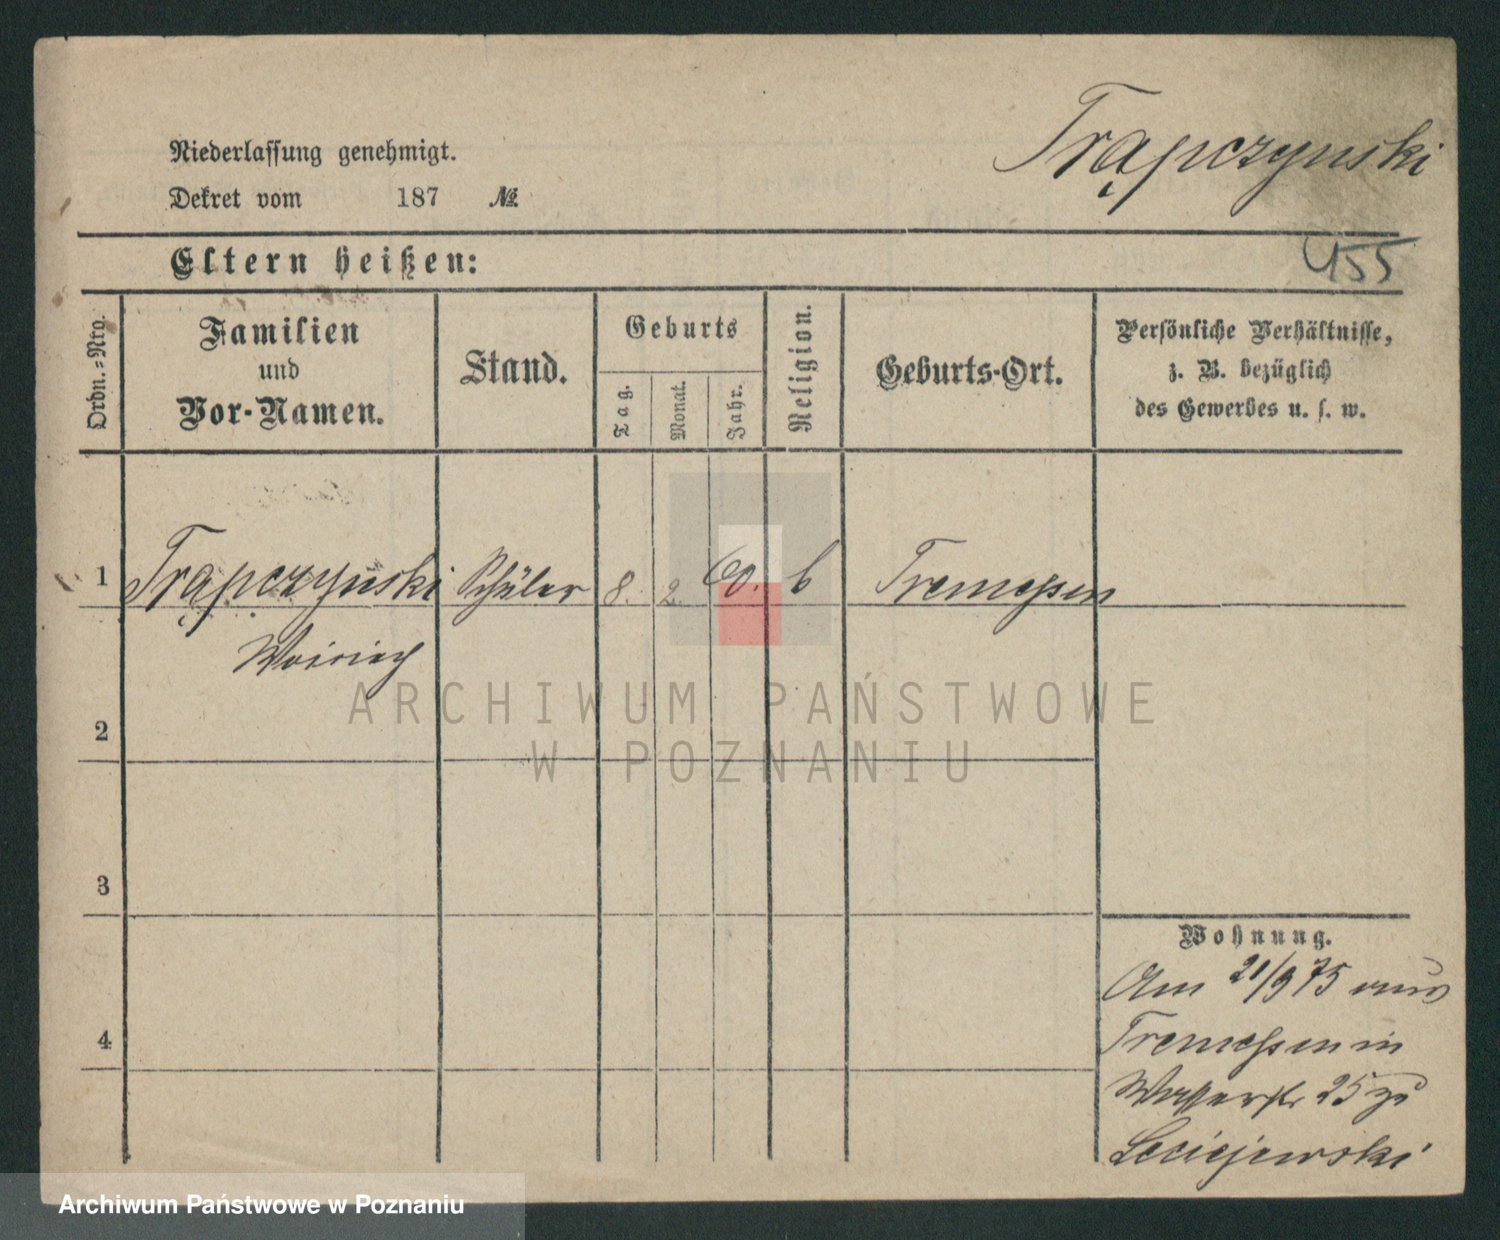 Trąpczynski
Niederlassung genehmigt.
Dekret vom 187 №
Eltern heißen:
455
Ordn.-Nro.
Familien
und
Vor-Namen.
Stand.
Geburts
Tag.
Monat.
Jahr.
Religion.
Geburts-Ort.
Persönliche Verhältnisse,
z. B. bezüglich
des Gewerbes u. s. w.
1 Trąpczynski Schüler 8. 2. 60. k Tremessen
2
3
4
Wohnung.
Am 21/9 75 aus
Tremessen in
Wasserstr 25 zu
Leciejewski
ARCHIWUM PAŃSTWOWE
W POZNANIU
Archiwum Państwowe w Poznaniu